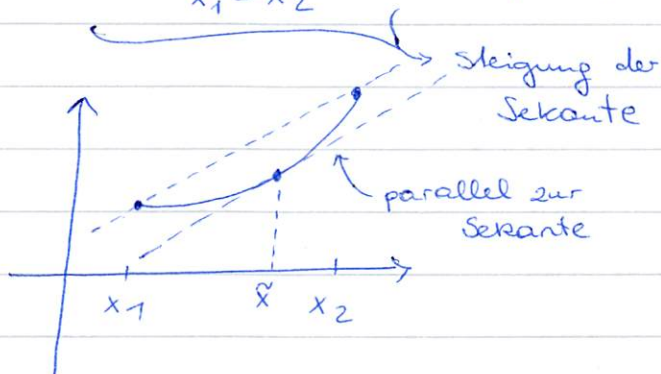 x₁ - x₂
Steigung der
Sekante
parallel zur
Sekante
x₁ x̃ x₂